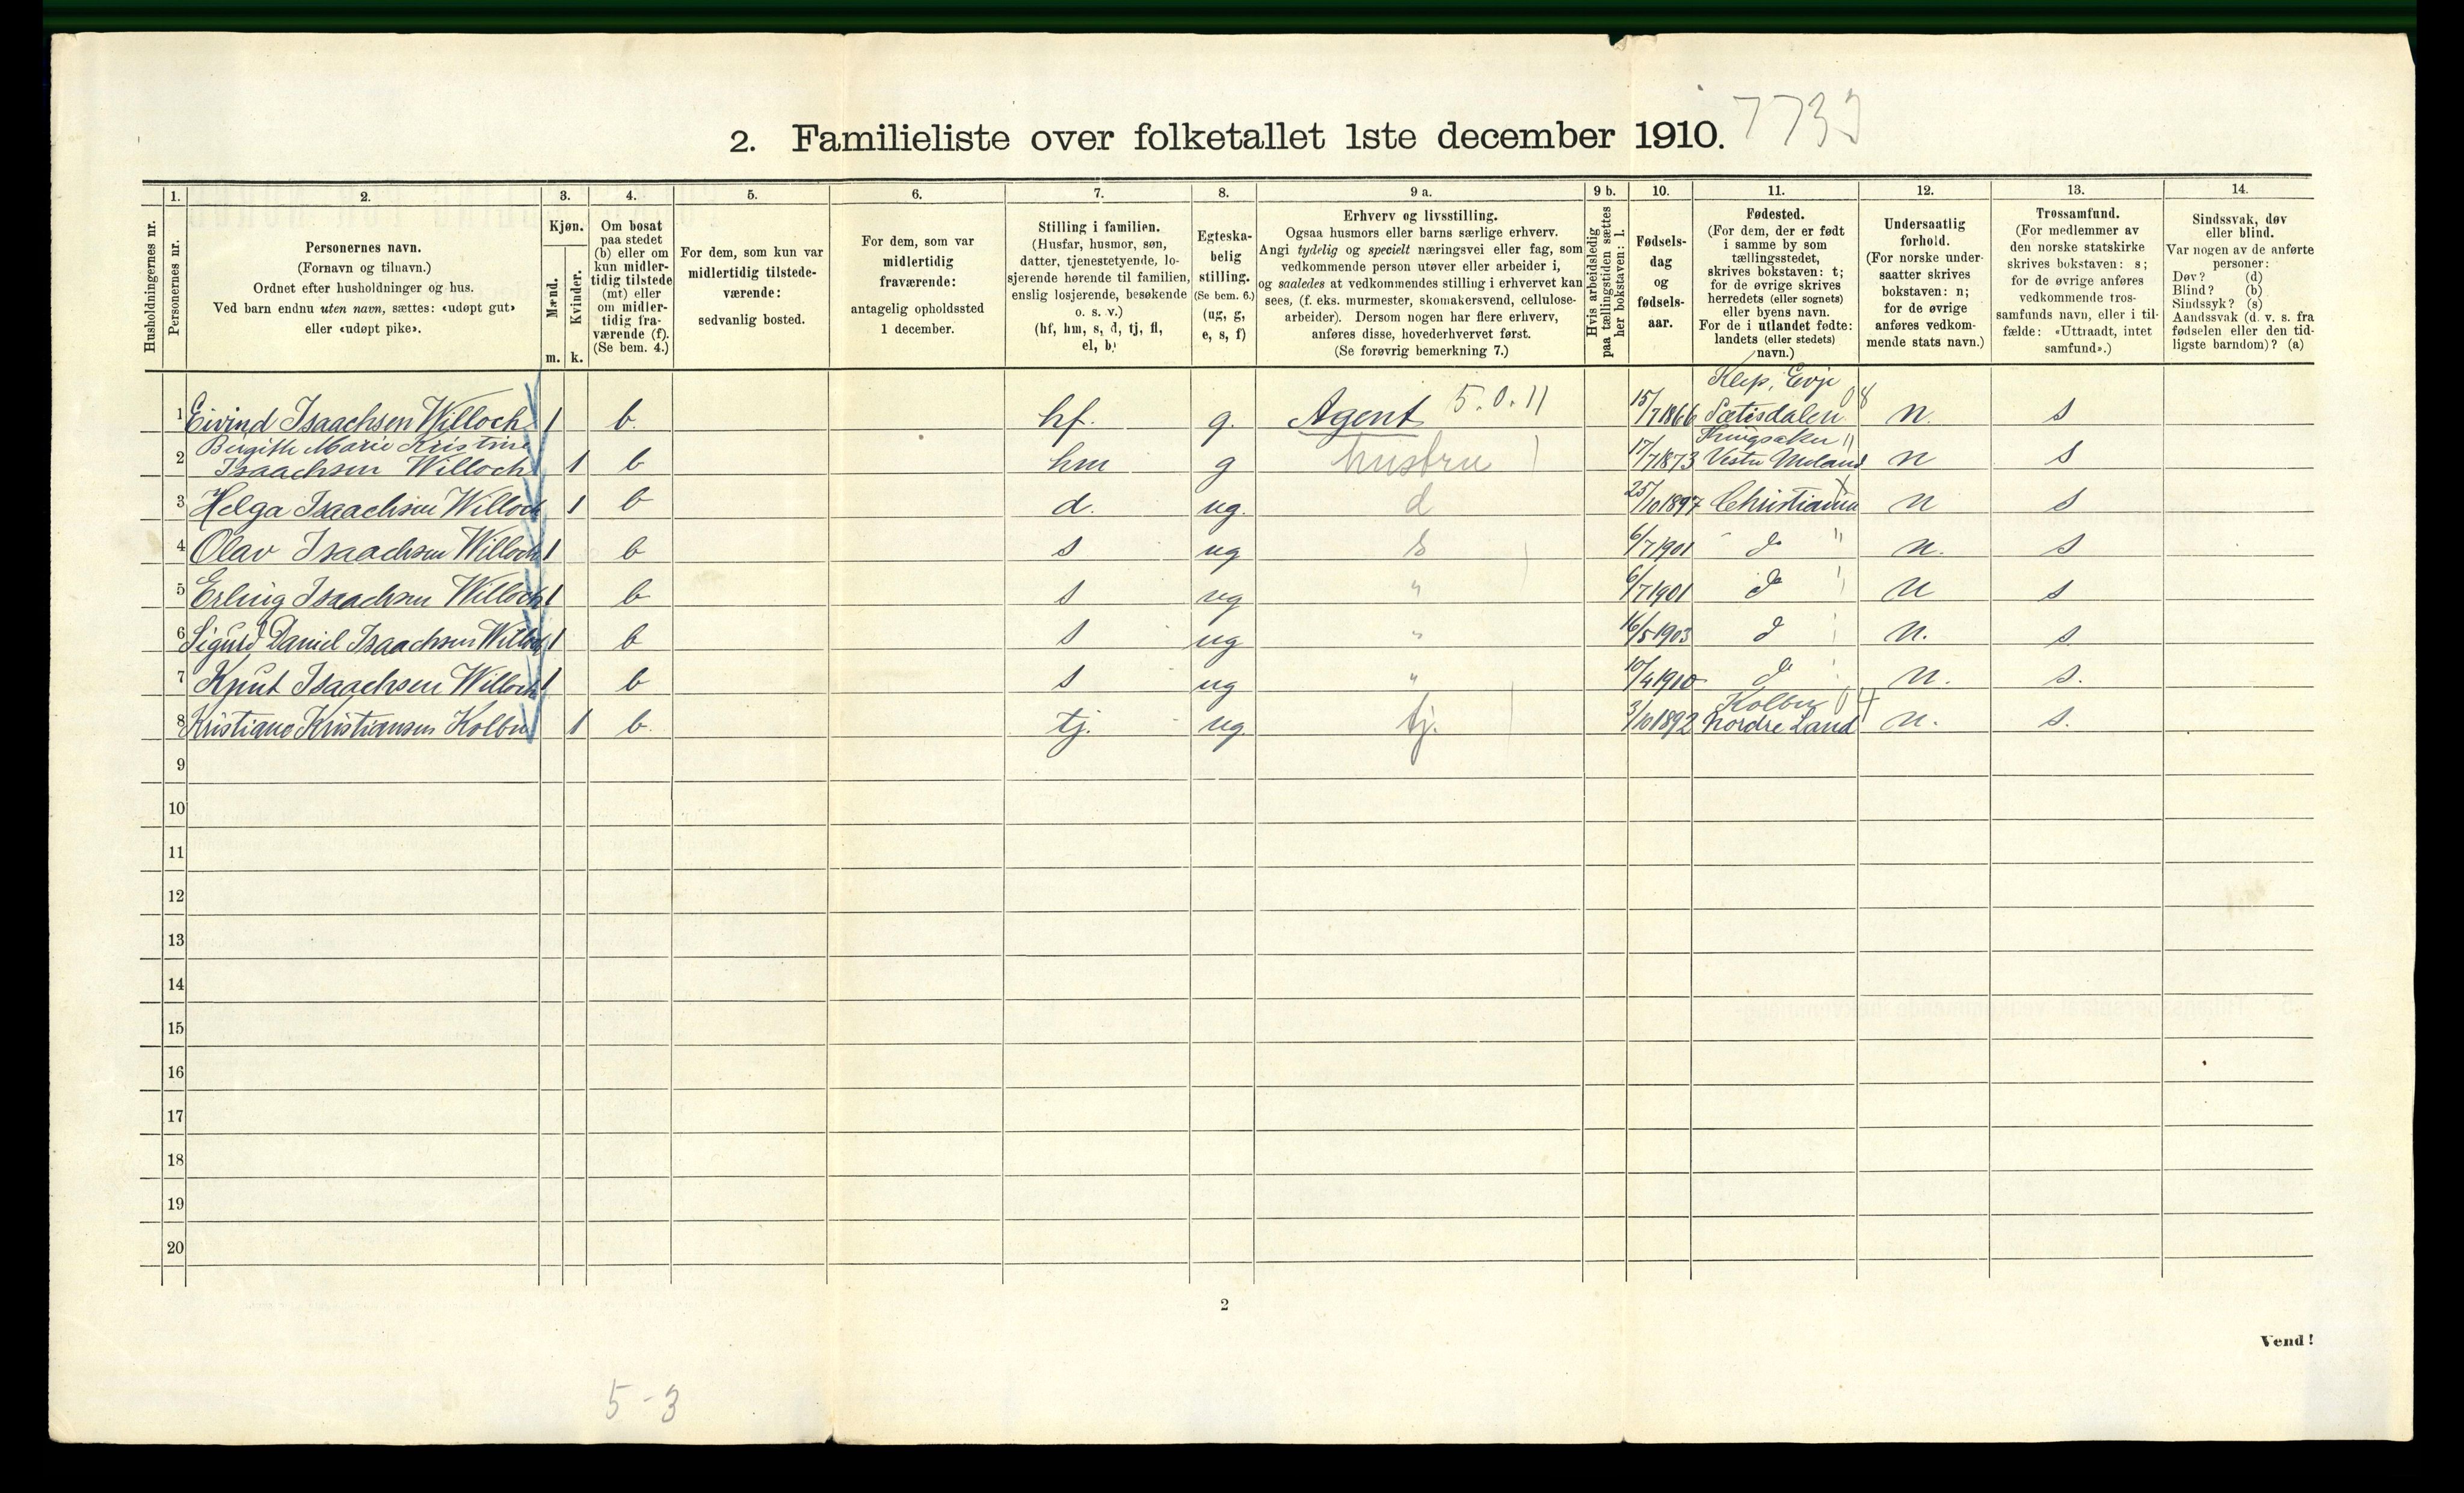 7733
2. Familieliste over folketallet 1ste december 1910.
Husholdningernes nr.
1. Personernes nr.
2. Personernes navn.
(Fornavn og tilnavn.)
Ordnet efter husholdninger og hus.
Ved barn endnu uten navn, sættes: «udøpt gut»
eller «udøpt pike».
3. Kjøn.
Mænd. m.
Kvinder. k.
4. Om bosat
paa stedet
(b) eller om
kun midler-
tidig tilstede
(mt) eller
om midler-
tidig fra-
værende (f).
(Se bem. 4.)
5. For dem, som kun var
midlertidig tilstede-
værende:
sedvanlig bosted.
6. For dem, som var
midlertidig
fraværende:
antagelig opholdssted
1 december.
7. Stilling i familien.
(Husfar, husmor, søn,
datter, tjenestetyende, lo-
sjerende hørende til familien,
enslig losjerende, besøkende
o. s. v.)
(hf, hm, s, d, tj, fl,
el, b)
8. Egteska-
belig
stilling.
(Se bem. 6.)
(ug, g,
e, s, f)
9 a. Erhverv og livsstilling.
Ogsaa husmors eller barns særlige erhverv.
Angi tydelig og specielt næringsvei eller fag, som
vedkommende person utøver eller arbeider i,
og saaledes at vedkommendes stilling i erhvervet kan
sees, (f. eks. murmester, skomakersvend, cellulose-
arbeider). Dersom nogen har flere erhverv,
anføres disse, hovederhvervet først.
(Se forøvrig bemerkning 7.)
9 b. Hvis arbeidsledig
paa tællingstiden sættes
her bokstaven: l.
10. Fødsels-
dag
og
fødsels-
aar.
11. Fødested.
(For dem, der er født
i samme by som
tællingsstedet,
skrives bokstaven: t;
for de øvrige skrives
herredets (eller sognets)
eller byens navn.
For de i utlandet fødte:
landets (eller stedets)
navn.)
12. Undersaatlig
forhold.
(For norske under-
saatter skrives
bokstaven: n;
for de øvrige
anføres vedkom-
mende stats navn.)
13. Trossamfund.
(For medlemmer av
den norske statskirke
skrives bokstaven: s;
for de øvrige anføres
vedkommende tros-
samfunds navn, eller i til-
fælde: «Uttraadt, intet
samfund».)
14. Sindssvak, døv
eller blind.
Var nogen av de anførte
personer:
Døv? (d)
Blind? (b)
Sindssyk? (s)
Aandssvak (d. v. s. fra
fødselen eller den tid-
ligste barndom)? (a)
Klep, Evje
1 Eivind Isaachsen Willoch 1 b. hf. g. Agent 5.0.11 15/7 1866 Sætisdalen 08 n. s
Birgitte Marie Kristine
2 Isaachsen Willoch 1 b hm g hustru 17/7 1873 Vestre n s
3 Helga Isaachsen Willoch 1 b d. ug. d 25/10 1897 Christiania n s
4 Olav Isaachsen Willoch 1 b s ug s 6/7 1901 do " n. s
5 Erling Isaachsen Willoch 1 b s ug " 6/7 1901 do " n s
6 Sigurd Daniel Isaachsen Willoch 1 b s ug " 16/5 1903 d n. s.
7 Knut Isaachsen Willoch 1 b s ug " 10/4 1910 do n. s.
Kolbu 04
8 Kristiane Kristiansen Kolbu 1 b. tj. ug tj. 3/10 1892 Nordre Land n. s.
9
10
11
12
13
14
15
16
17
18
19
20
2
Vend!
5-3